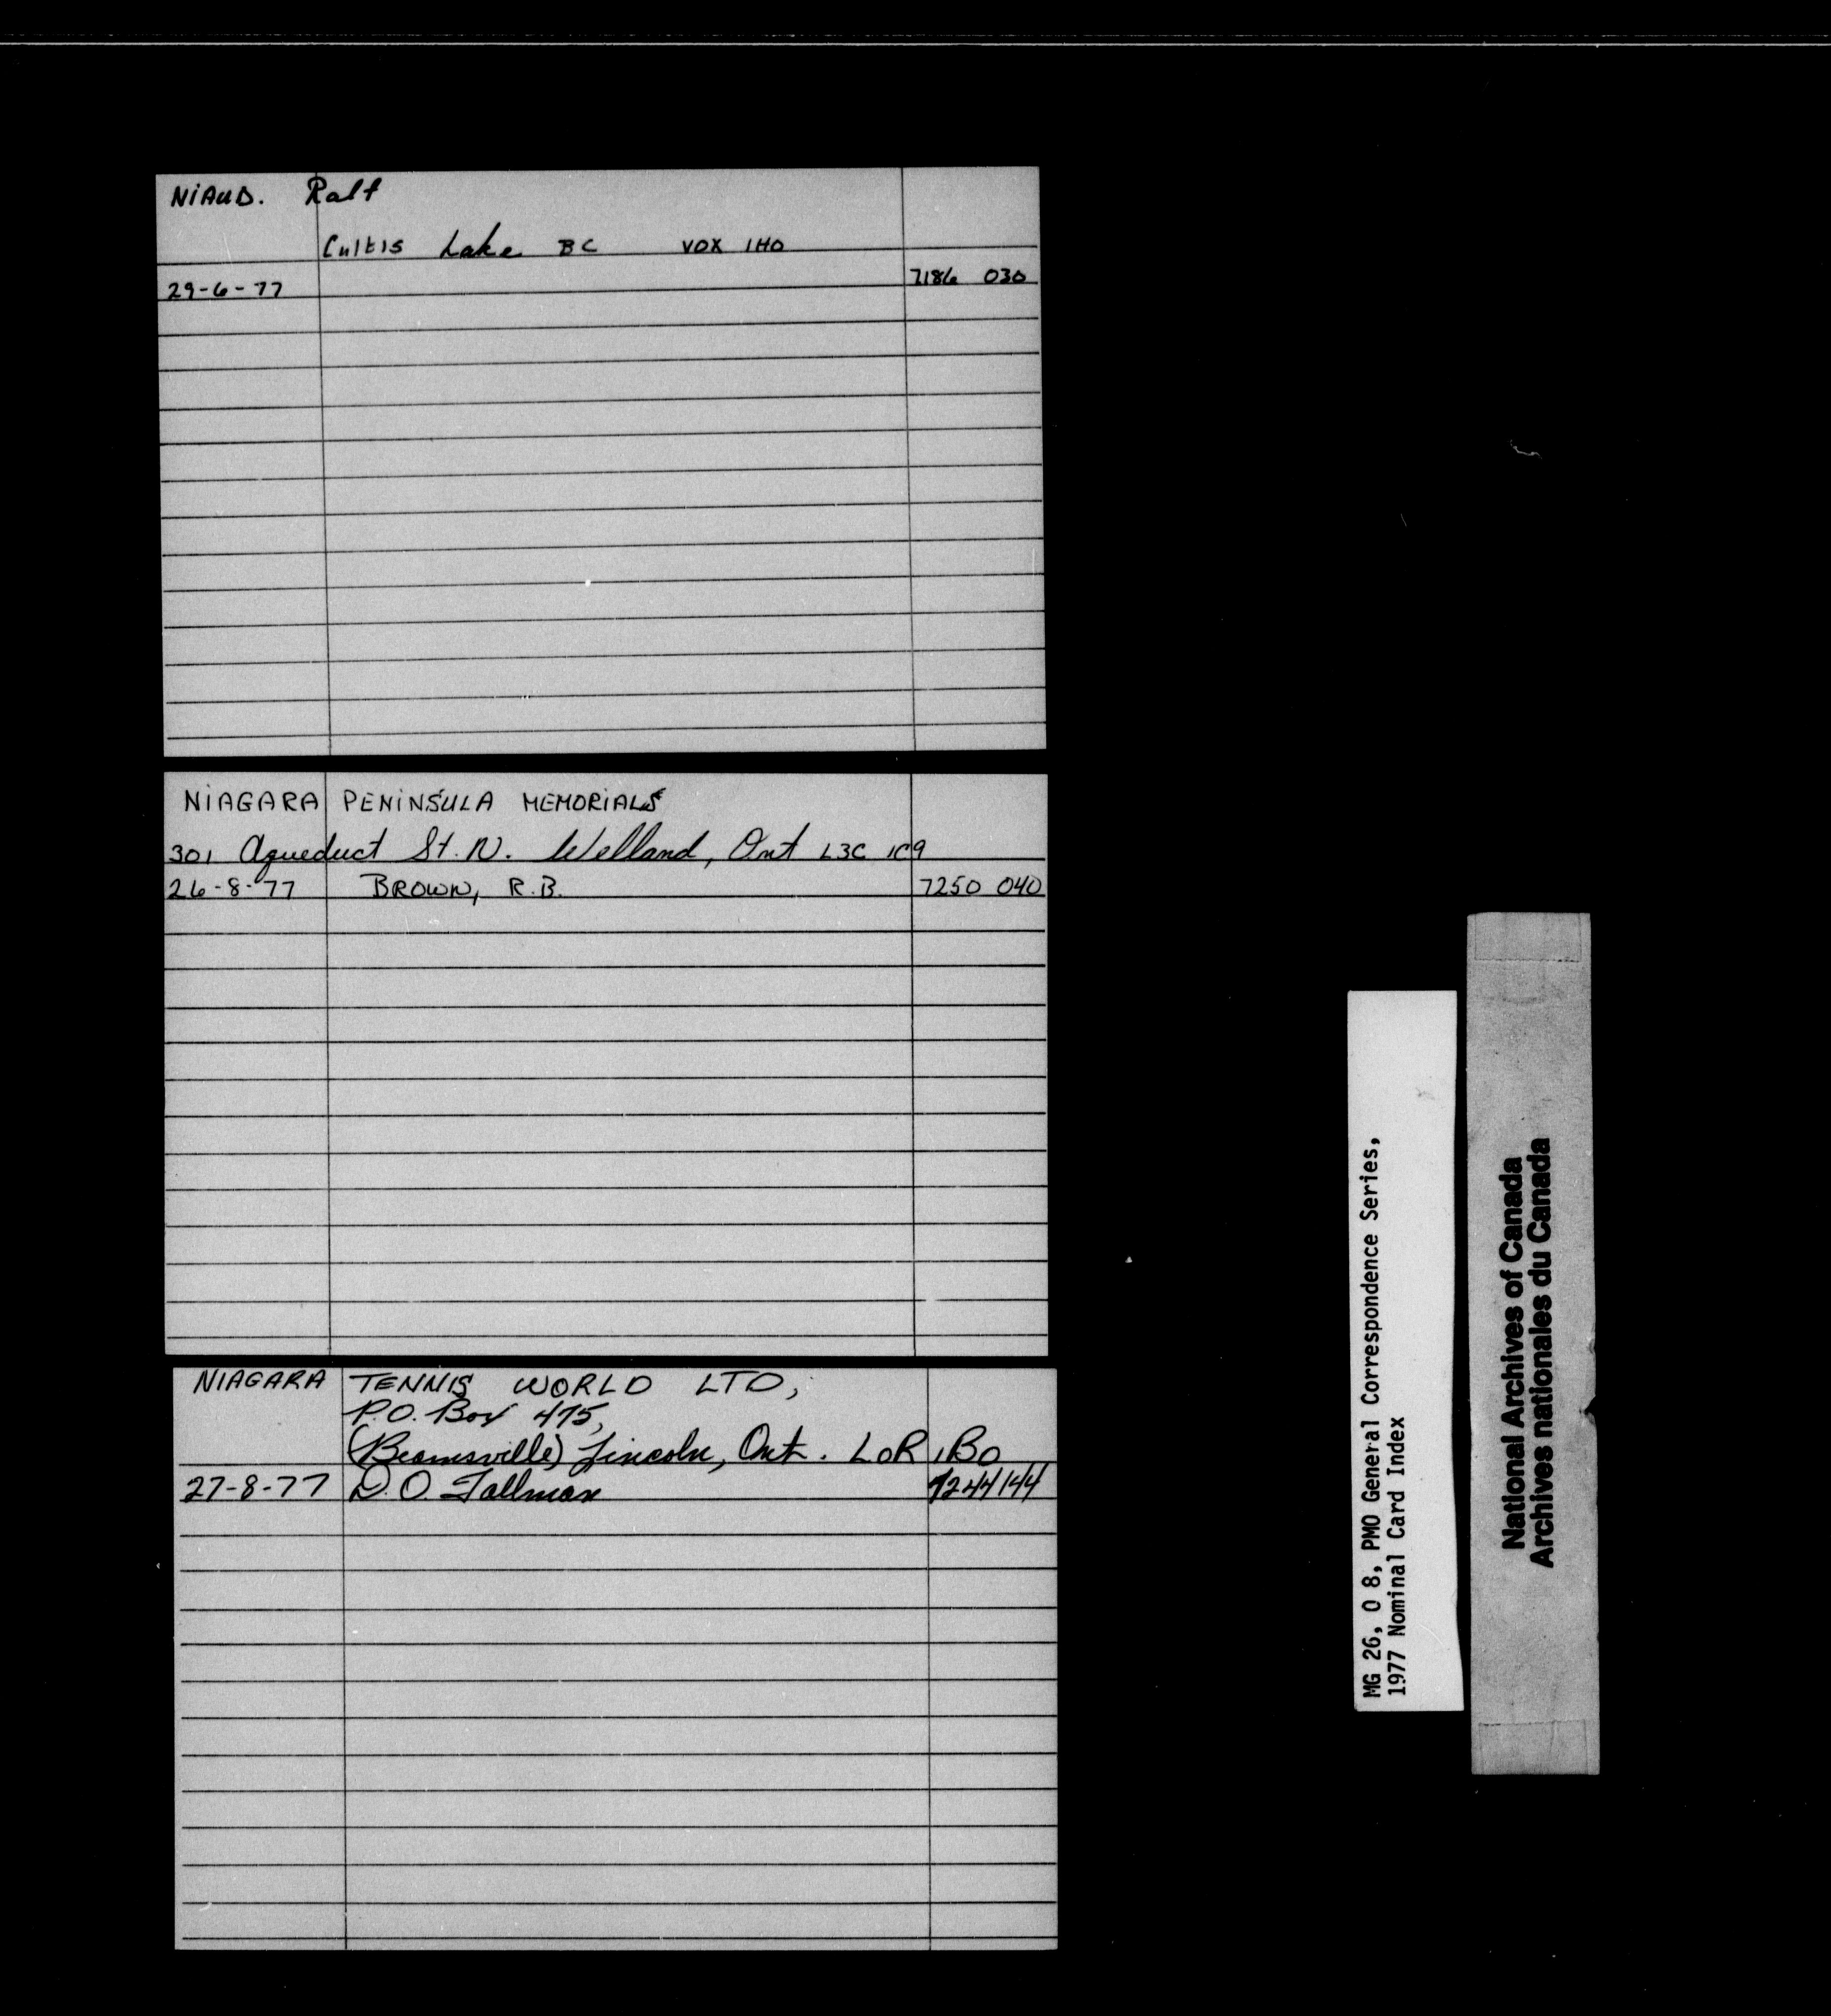 NIAUD. Ralf
Cultis Lake BC VOX 1HO
29-6-77 7186 030
NIAGARA PENINSULA MEMORIALS
301 Aqueduct St. N. Welland, Ont L3C 1C9
26-8-77 BROWN, R.B. 7250 040
NIAGARA TENNIS WORLD LTD,
P.O. Box 475,
(Beamsville) Lincoln, Ont. LOR 1BO
27-8-77 D.O. Tallman 7244144
MG 26, O 8, PMO General Correspondence Series,
1977 Nominal Card Index
National Archives of Canada
Archives nationales du Canada